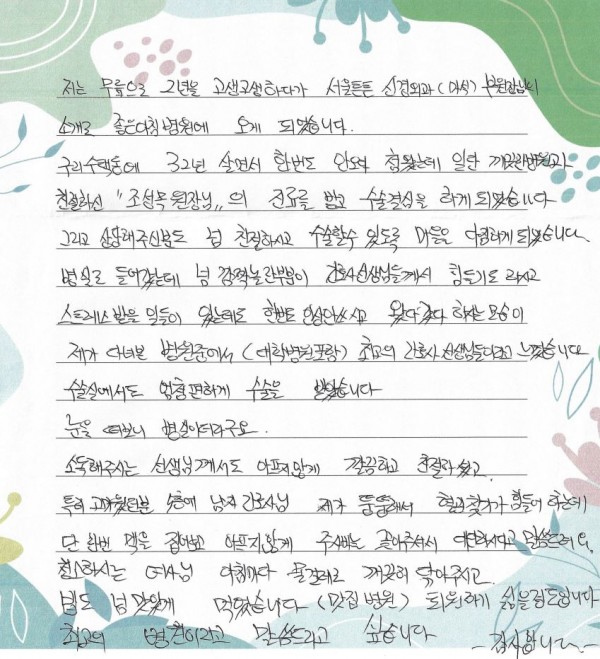 저는 무릎으로 2년을 고생고생하다가 서울튼튼 신경외과 (마석) 부원장님의
소개로 좋은아침병원에 오게 되었습니다.
구리수택동에 32년 살면서 한번도 안오다 첨왔는데 일단 깨끗한병원과
친절하신 "조성목원장님"의 진료를 받고 수술결심을 하게되었습니다
그리고 상담해주신분도 넘 친절하시고 수술할수 있도록 마음을 다짐하게되었습니다.
병실로 들어갔는데 넘 깜짝놀란부분이 간호사선생님들께서 힘들기도 하시고
스트레스 받을 일들이 있는데도 한번도 인상안쓰시고 왔다갔다 하시는모습이
제가 다녀본 병원중에서 (대학병원포함) 최고의 간호사선생님들이라고 느꼈습니다
수술실에서도 엄청편하게 수술을 받았습니다
눈을 떠보니 병실이더라구요.
소독해주시는 선생님께서도 아프지않게 깔끔하고 친절하셨고.
특히 남자간호사님 제가 뚱뚱해서 혈관찾기가 힘들어 하는데
단 한번 맥을 집어보고 아프지않게 주사바늘 꽂아주셔서 대단하시다고 말씀드려요.
청소하시는 여사님 아침마다 물걸레로 깨끗히 닦아주시고.
밥도 넘 맛있게 먹었습니다 (맛집병원) 퇴원하기 싫을정도입니다
최고의 병원이라고 말씀드리고 싶습니다 -감사합니다.-